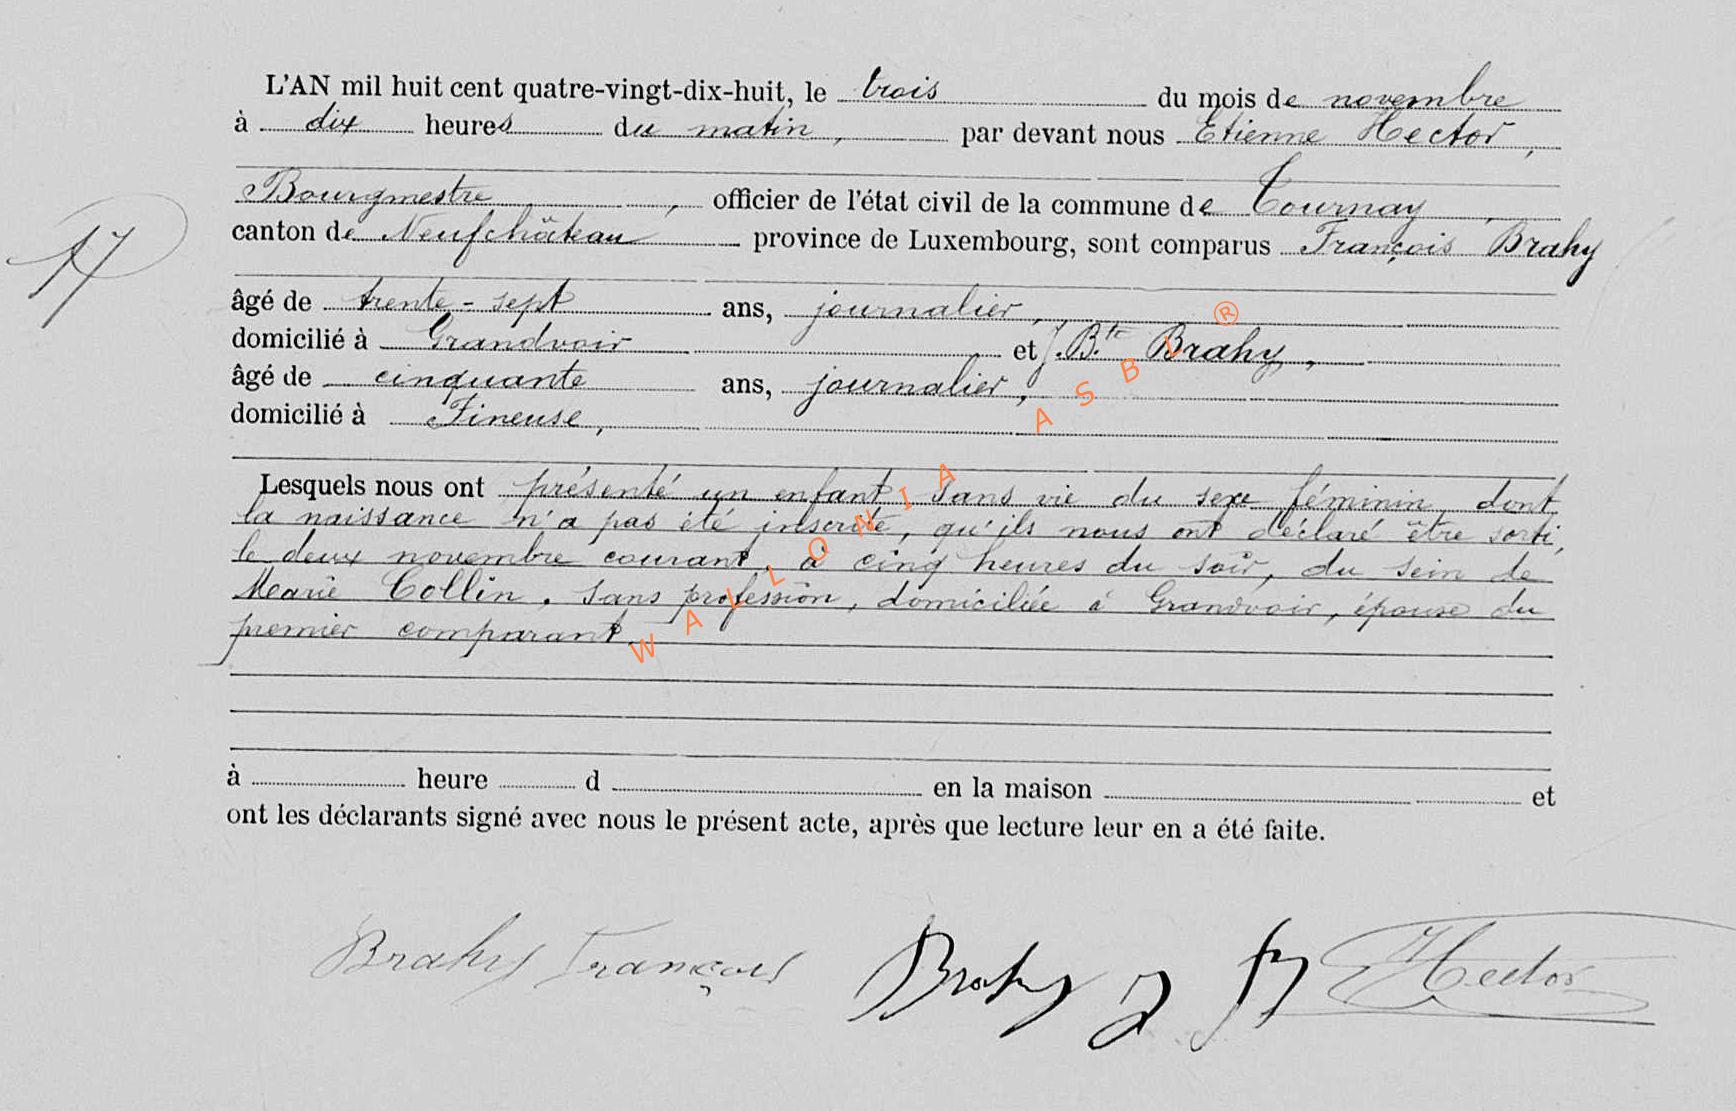 L'AN mil huit cent quatre-vingt-dix-huit, le trois du mois de novembre
à dix heures du matin, par devant nous Etienne Hector,
Bourgmestre, officier de l'état civil de la commune de Tournay,
canton de Neufchâteau province de Luxembourg, sont comparus François Brahy
17
âgé de trente-sept ans, journalier,
domicilié à Grandvoir et J. Bte Brahy,
âgé de cinquante ans, journalier,
domicilié à Fineuse,
Lesquels nous ont présenté un enfant sans vie du sexe féminin dont
la naissance n'a pas été inscrite, qu'ils nous ont déclaré être sorti,
le deux novembre courant, à cinq heures du soir, du sein de
Marie Collin, sans profession, domiciliée à Grandvoir, épouse du
premier comparant.
WALLONIA ASBL ®
à heure d en la maison et
ont les déclarants signé avec nous le présent acte, après que lecture leur en a été faite.
Brahy François Brahy J Hector